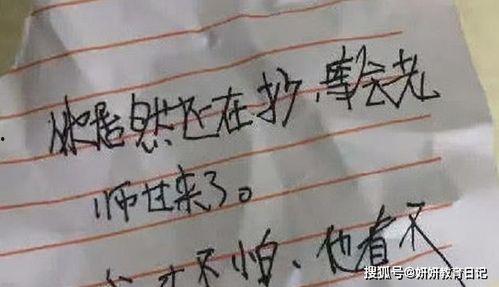 她居然还在抄,等会老
师过来了。
才不怕、他看不
搜狐号@妍妍教育日记